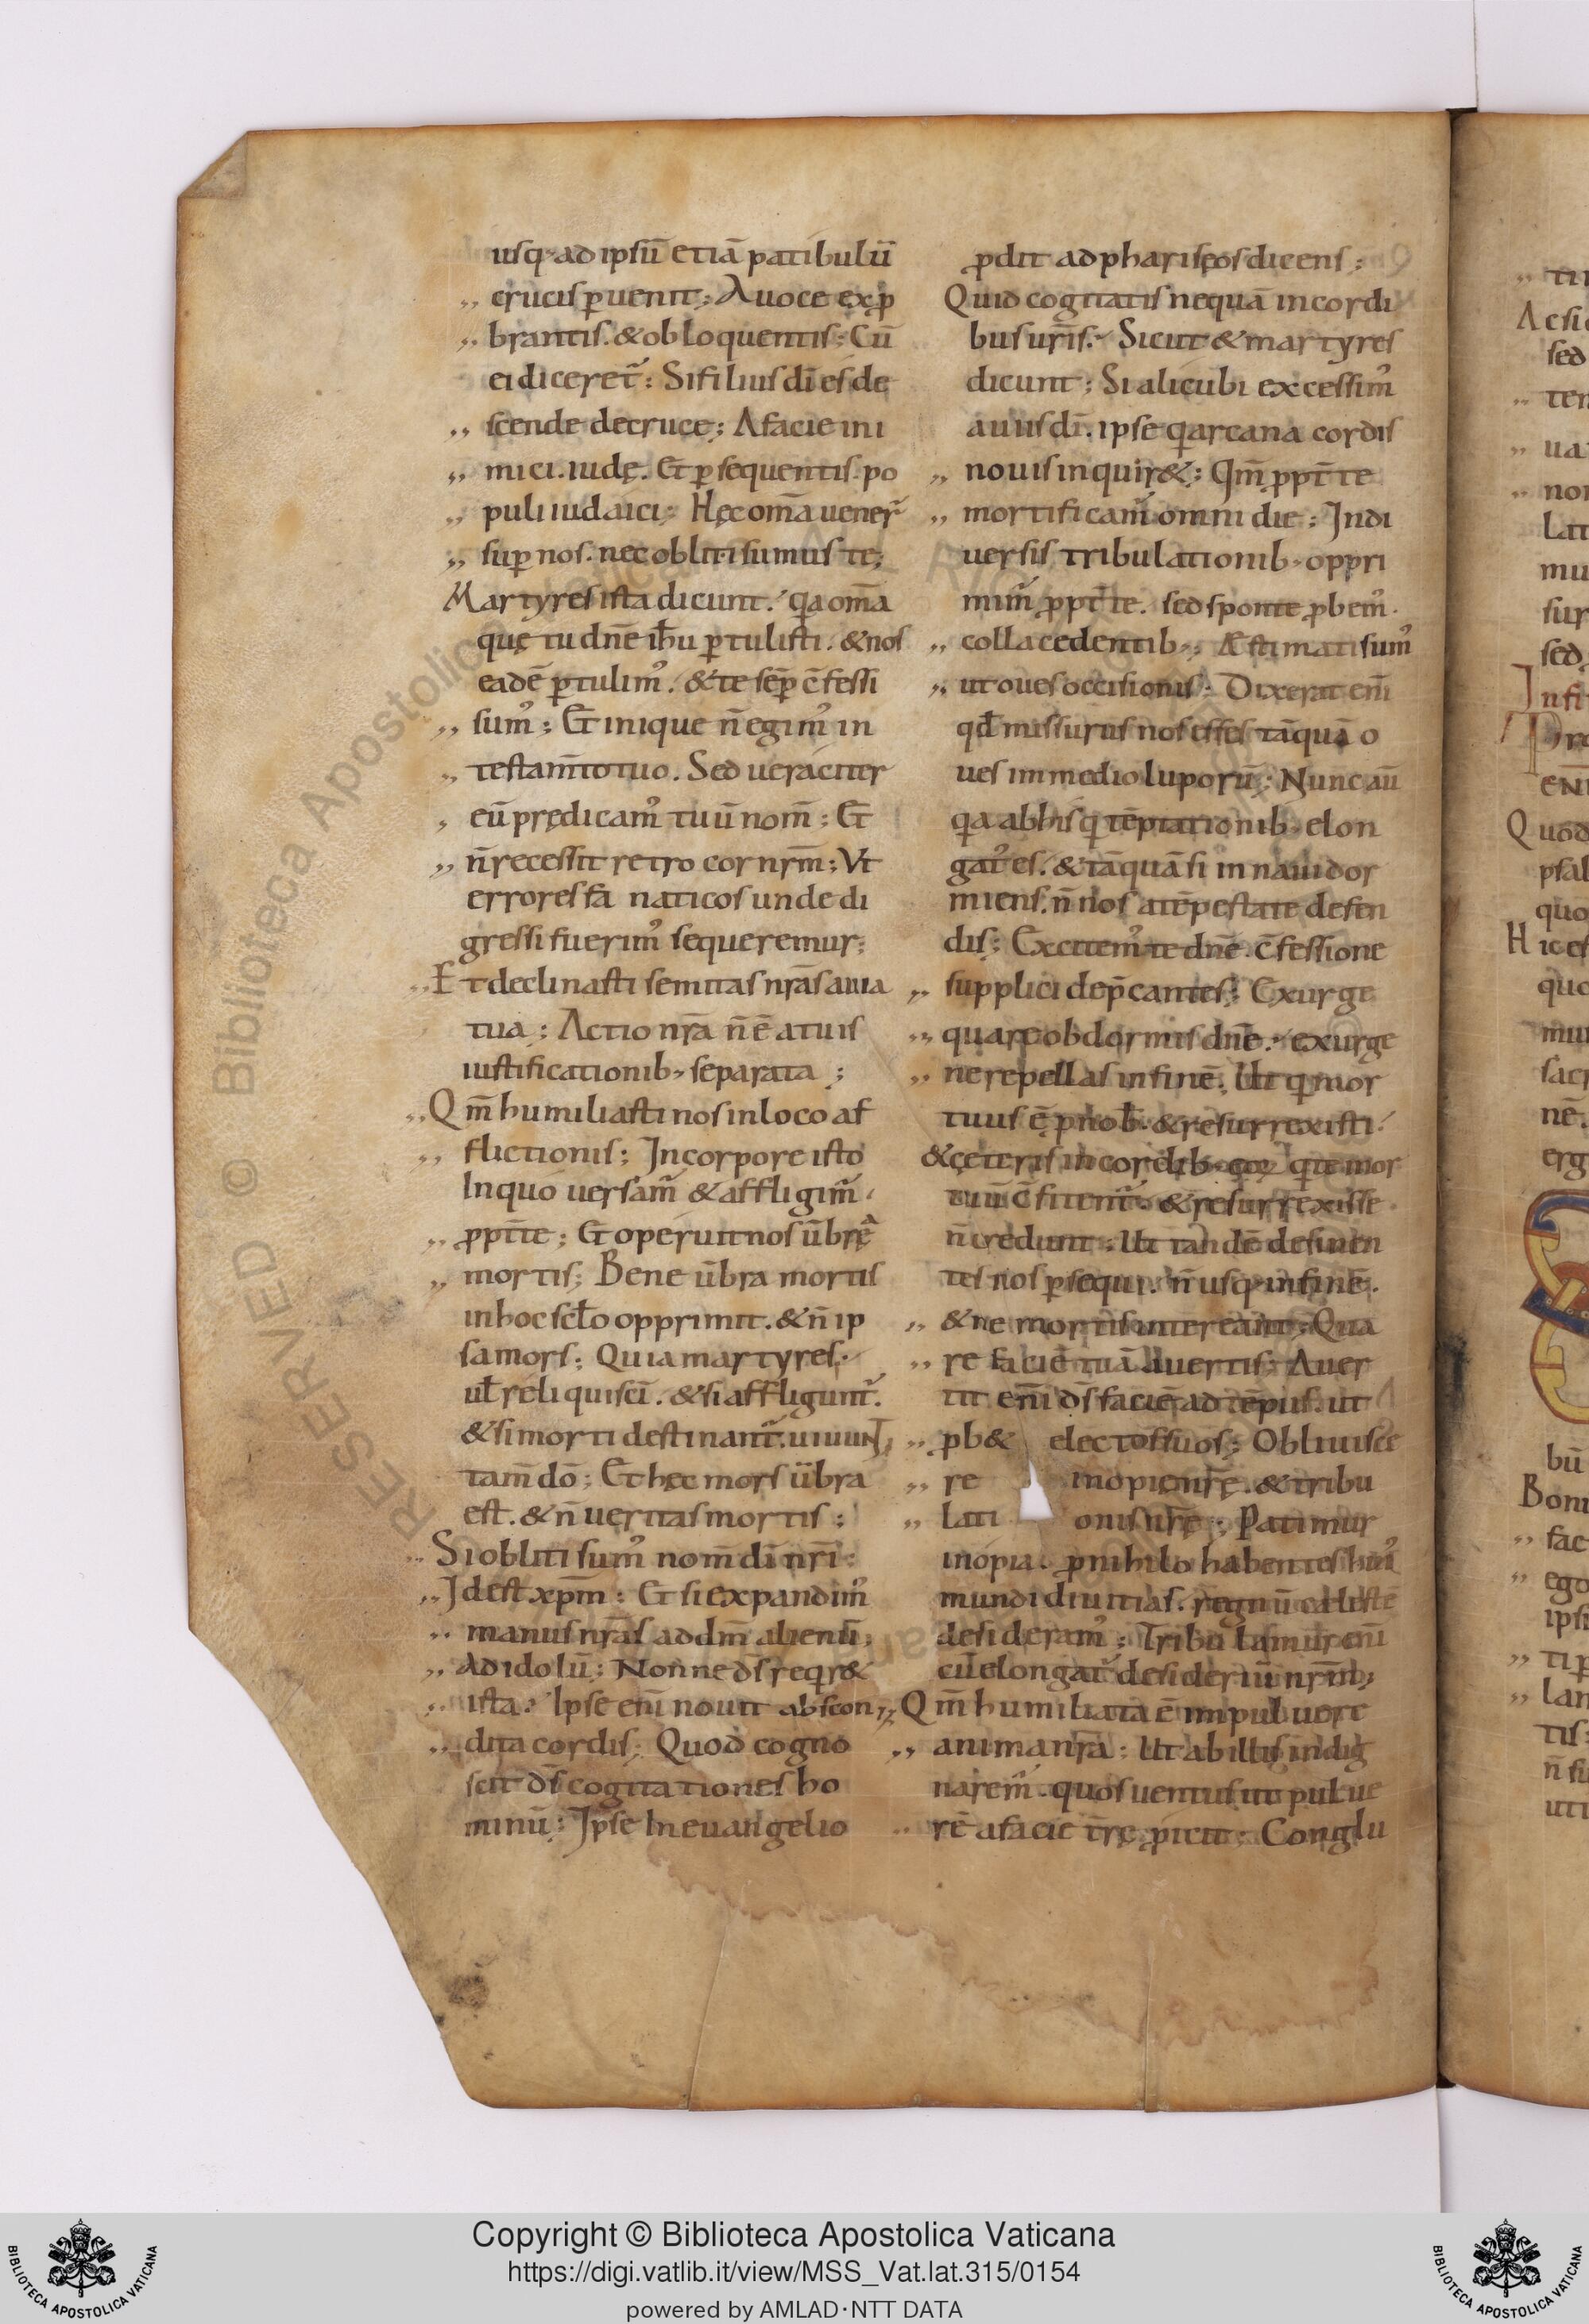 usq· ad ipsū etiā patibulū
crucis ꝑuenit; A uoce exꝓ
brantis. & obloquentis; Cū
ei diceret᷑: Si filius dī es de
scende de cruce; A facie ini
mici. iudę. Et ꝑsequentis po
puli iudaici; Hęc om̄a uener᷑
suꝑ nos. nec obliti sumus te;
Martyres ista dicunt. qa om̄a
quę tu dn̄e ih̄u ꝑtulisti. & nos
eadē ꝑtulim᷒. & te sēp c̄fessi
sum᷒; Et inique n̄ egim᷒ in
testam̄to tuo. Sed ueraciter
eū prędicam᷒ tuū nom̄; Et
n̄ recessit retro cor nr̄m; Vt
errores fanaticos unde di
gressi fuerim᷒ sequeremur;
Et declinasti semitas nr̄as a uia
tua; Actio nr̄a n̄ ē a tuis
iustificationib; separata;
Qm̄ humiliasti nos in loco af
flictionis; In corpore isto
In quo uersam᷑ & affligim᷑
ꝓpt̄ te; Et operuit nos ūbrę
mortis; Bene ūbra mortis
in hoc sc̄lo opprimit. & n̄ ip
sa mors; Quia martyres
ul̄ reliqui sc̄i. & si affligunt᷑.
& si morti destinant᷑. uiuunt
tam̄ dō; Et hęc mors ūbra
est. & n̄ ueritas mortis;
Si obliti sum᷒ nom̄ dī nr̄i;
Id est xp̄m; Et si expandim᷒
manus nr̄as ad dm̄ alienū;
Ad idolū; Nonne ds̄ reqr&
ista; Ipse eni᷑ nouit abscon
dita cordis; Quod cogno
scit ds̄ cogitationes ho
minū; Ipse In euangelio
ꝓdit ad phariseos dicens;
Quid cogitatis nequā in cordi
bus ur̄is; Sicut & martyres
dicunt; Si alicubi excessim᷒
a uiis dī. ipse q arcana cordis
nouis inquir&; Qm̄ ꝓpt̄ te
mortificam᷑ omni die; In di
uersis tribulationib; oppri
mim᷑ ꝓpt̄ te. sed sponte ꝓbem᷒
colla cedentib;; Æstimati sum᷒
ut oues occisionis; Dixerat eni᷑
qd̄ missurus nos esses tāquā o
ues in medio luporū; Nunc aū
qa ab his q tēptationib; elon
gat᷒ es. & tāquā si in naui dor
miens. n̄ nos a tēpestate defen
dis; Excitem᷒ te dn̄e. c̄fessione
supplici dep̄cantes; Exurge
quare obdormis dn̄e. exurge
ne repellas in finē. Ut q mor
tuus ē ꝓ nob̄. & resurrexisti.
& cęteris in cordib; eoꝝ q te mor
tuū c̄fitent᷑. & resurrexisse
n̄ credunt; Ut tandē desinen
tes nos ꝑsequi. n̄ usq· in finē.
& ne mortis intereant; Qua
re faciē tuā auertis; Auer
tit eni᷑ ds̄ faciē ad tēpus. ut
ꝓb& electos suos; Obliuisce
re inopię nr̄ę. & tribu
lationis nr̄ę; Patimur
inopiā. ꝓ nihilo habentes hui᷒
mundi diuitias. regnū cęlestē
desideram᷒; Tribulamur eni᷑
cū elongat᷑ desideriū nr̄m;
Qm̄ humiliata ē in puluere
anima nr̄a; Ut ab illis indig
narem᷑. quos uentus ut pulue
rē a facie t̄rę ꝓicit; Conglu
Copyright © Biblioteca Apostolica Vaticana
https://digi.vatlib.it/view/MSS_Vat.lat.315/0154
powered by AMLAD·NTT DATA
BIBLIOTECA APOSTOLICA VATICANA
BIBLIOTECA APOSTOLICA VATICANA